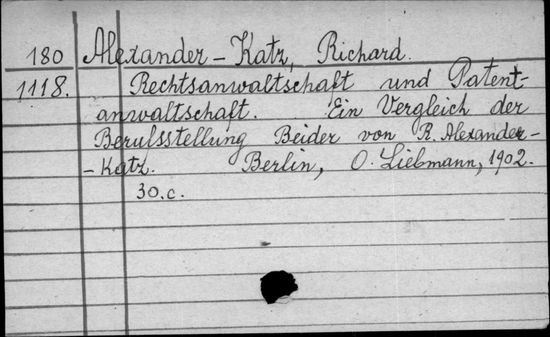 180 Alexander-Katz, Richard.
1118. Rechtsanwaltschaft und Patent-
anwaltschaft. Ein Vergleich der
Berulsstellung Beider von R. Alexander-
-Katz. Berlin, O. Liebmann, 1902.
30.c.